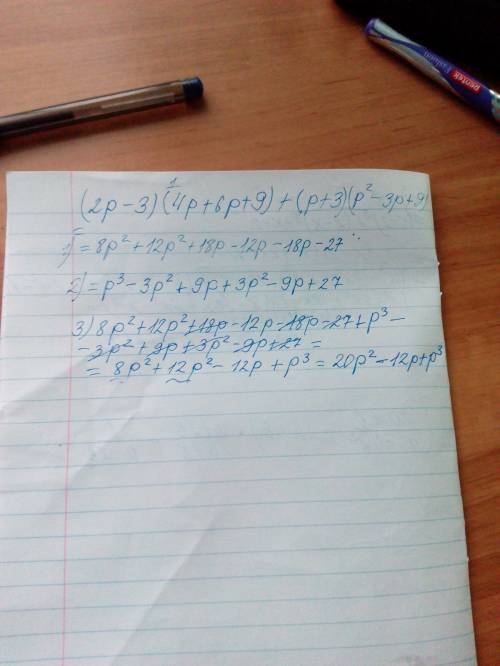 (2p-3)(4p+6p+9)+(p+3)(p²-3p+9)
1
1) =8p²+12p²+18p-12p-18p-27
2) =p³-3p²+9p+3p²-9p+27
3) 8p²+12p²+18p-12p-18p-27+p³-
-3p²+9p+3p²-9p+27=
=8p²+12p²-12p+p³=20p²-12p+p³
pentek